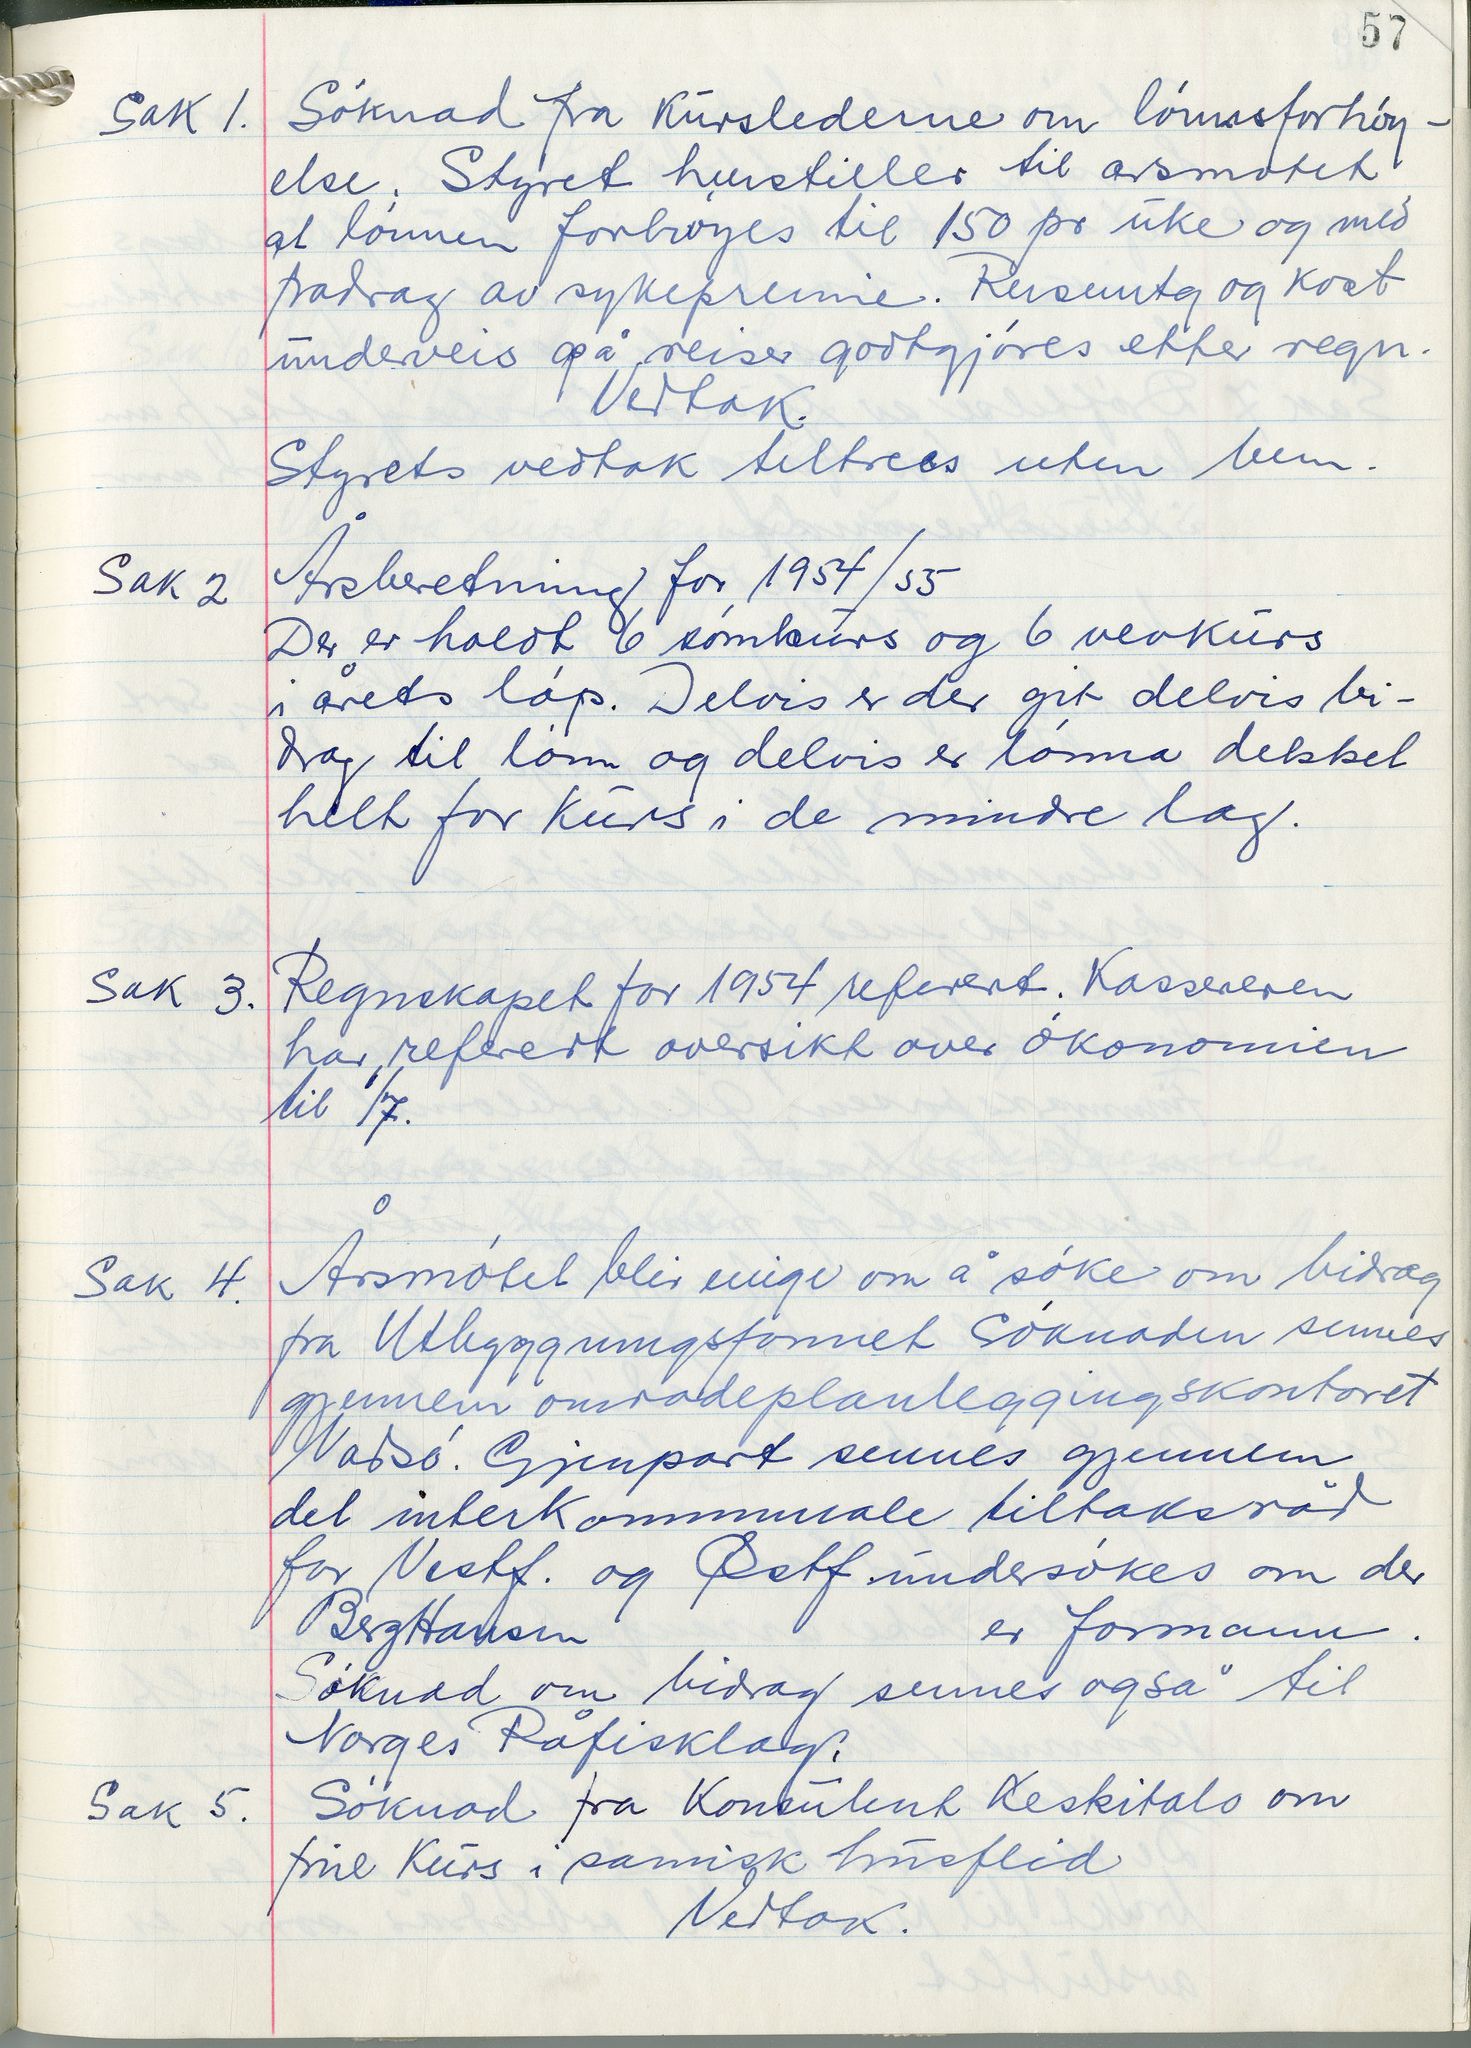 57
Sak 1. Söknad fra Kurslederne om lönnsforhöy-
else. Styret henstiller til årsmötet
at lönnen forhöyes til 150 pr uke og med
fradrag av sykepremie. Reiseutg og kost
underveis på reiser godtgjöres etter regn.
Vedtak.
Styrets vedtak tiltrees uten bem.
Sak 2 Årsberetning for 1954/55
Der er holdt 6 sömkurs og 6 vevkurs
i årets löp. Delvis er der git delvis bi-
drag til lönn og delvis er lönna dekket
helt for Kurs i de mindre lag.
Sak 3. Regnskapet for 1954 referert. Kassereren
har referert oversikt over ökonomien
til 1/7.
Sak 4. Årsmötet blir enige om å söke om bidrag
fra Utbyggningsfonnet Söknaden sennes
gjennem områdeplanleggingskontoret
Vadsö. Gjenpart sennes gjennem
det interkommunale tiltaksråd
for Vestf. og Østf. undersökes om der
Berg Hansen er formann.
Söknad om bidrag sennes også til
Norges Råfisklag.
Sak 5. Söknad fra Konsulent Keskitalo om
frie Kurs i samisk husflid
Vedtak.